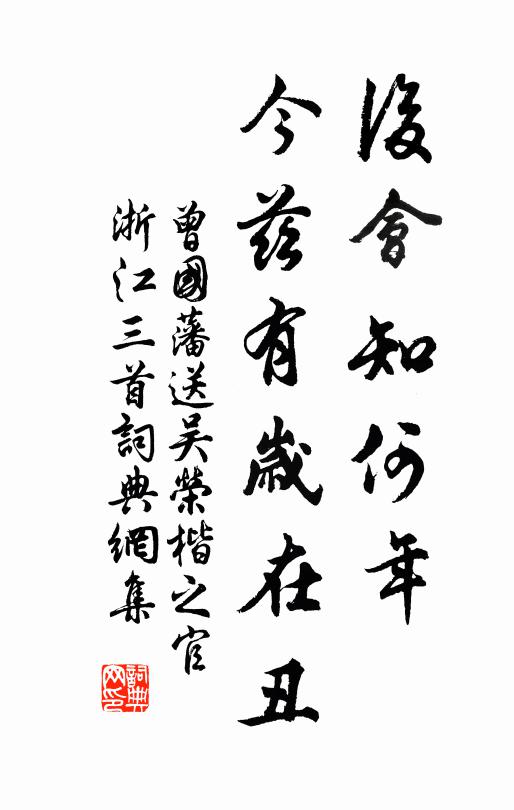 後會知何年
今茲有歲在丑
曾國藩送吴榮楷之官
浙江三首詞典網集
詞典網印